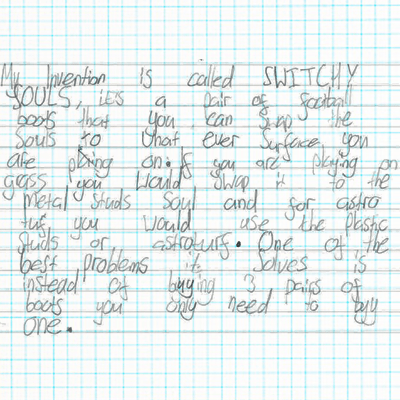 My Invention is called SWITCHY
SOULS, it's a pair of football
boots that you can swap the
Souls to what ever surface you
are plaing on. If you are playing on
grass you Would swap it to the
Metal studs Soul and for astro
tuf you Would use the Plastic
Studs or astroturf. One of the
best problems it Solves is
instead of buying 3 pairs of
boots you only need to byy
one.